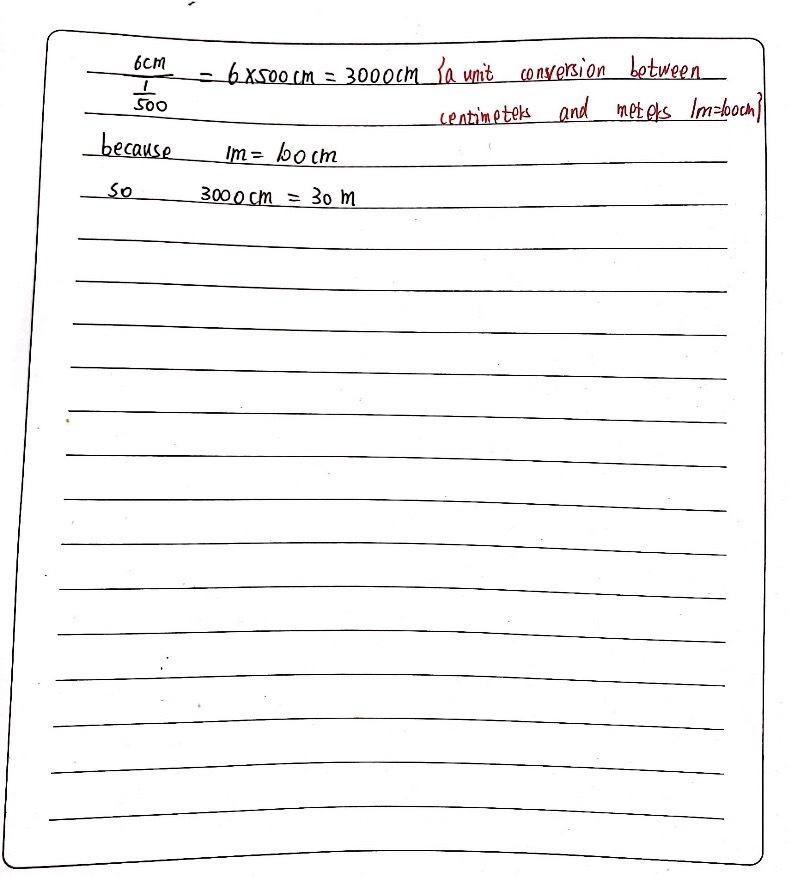 6cm/(1/500) = 6×500cm = 3000cm {a unit conversion between
centimeters and meters 1m=100cm}
because 1m = 100cm
so 3000cm = 30m